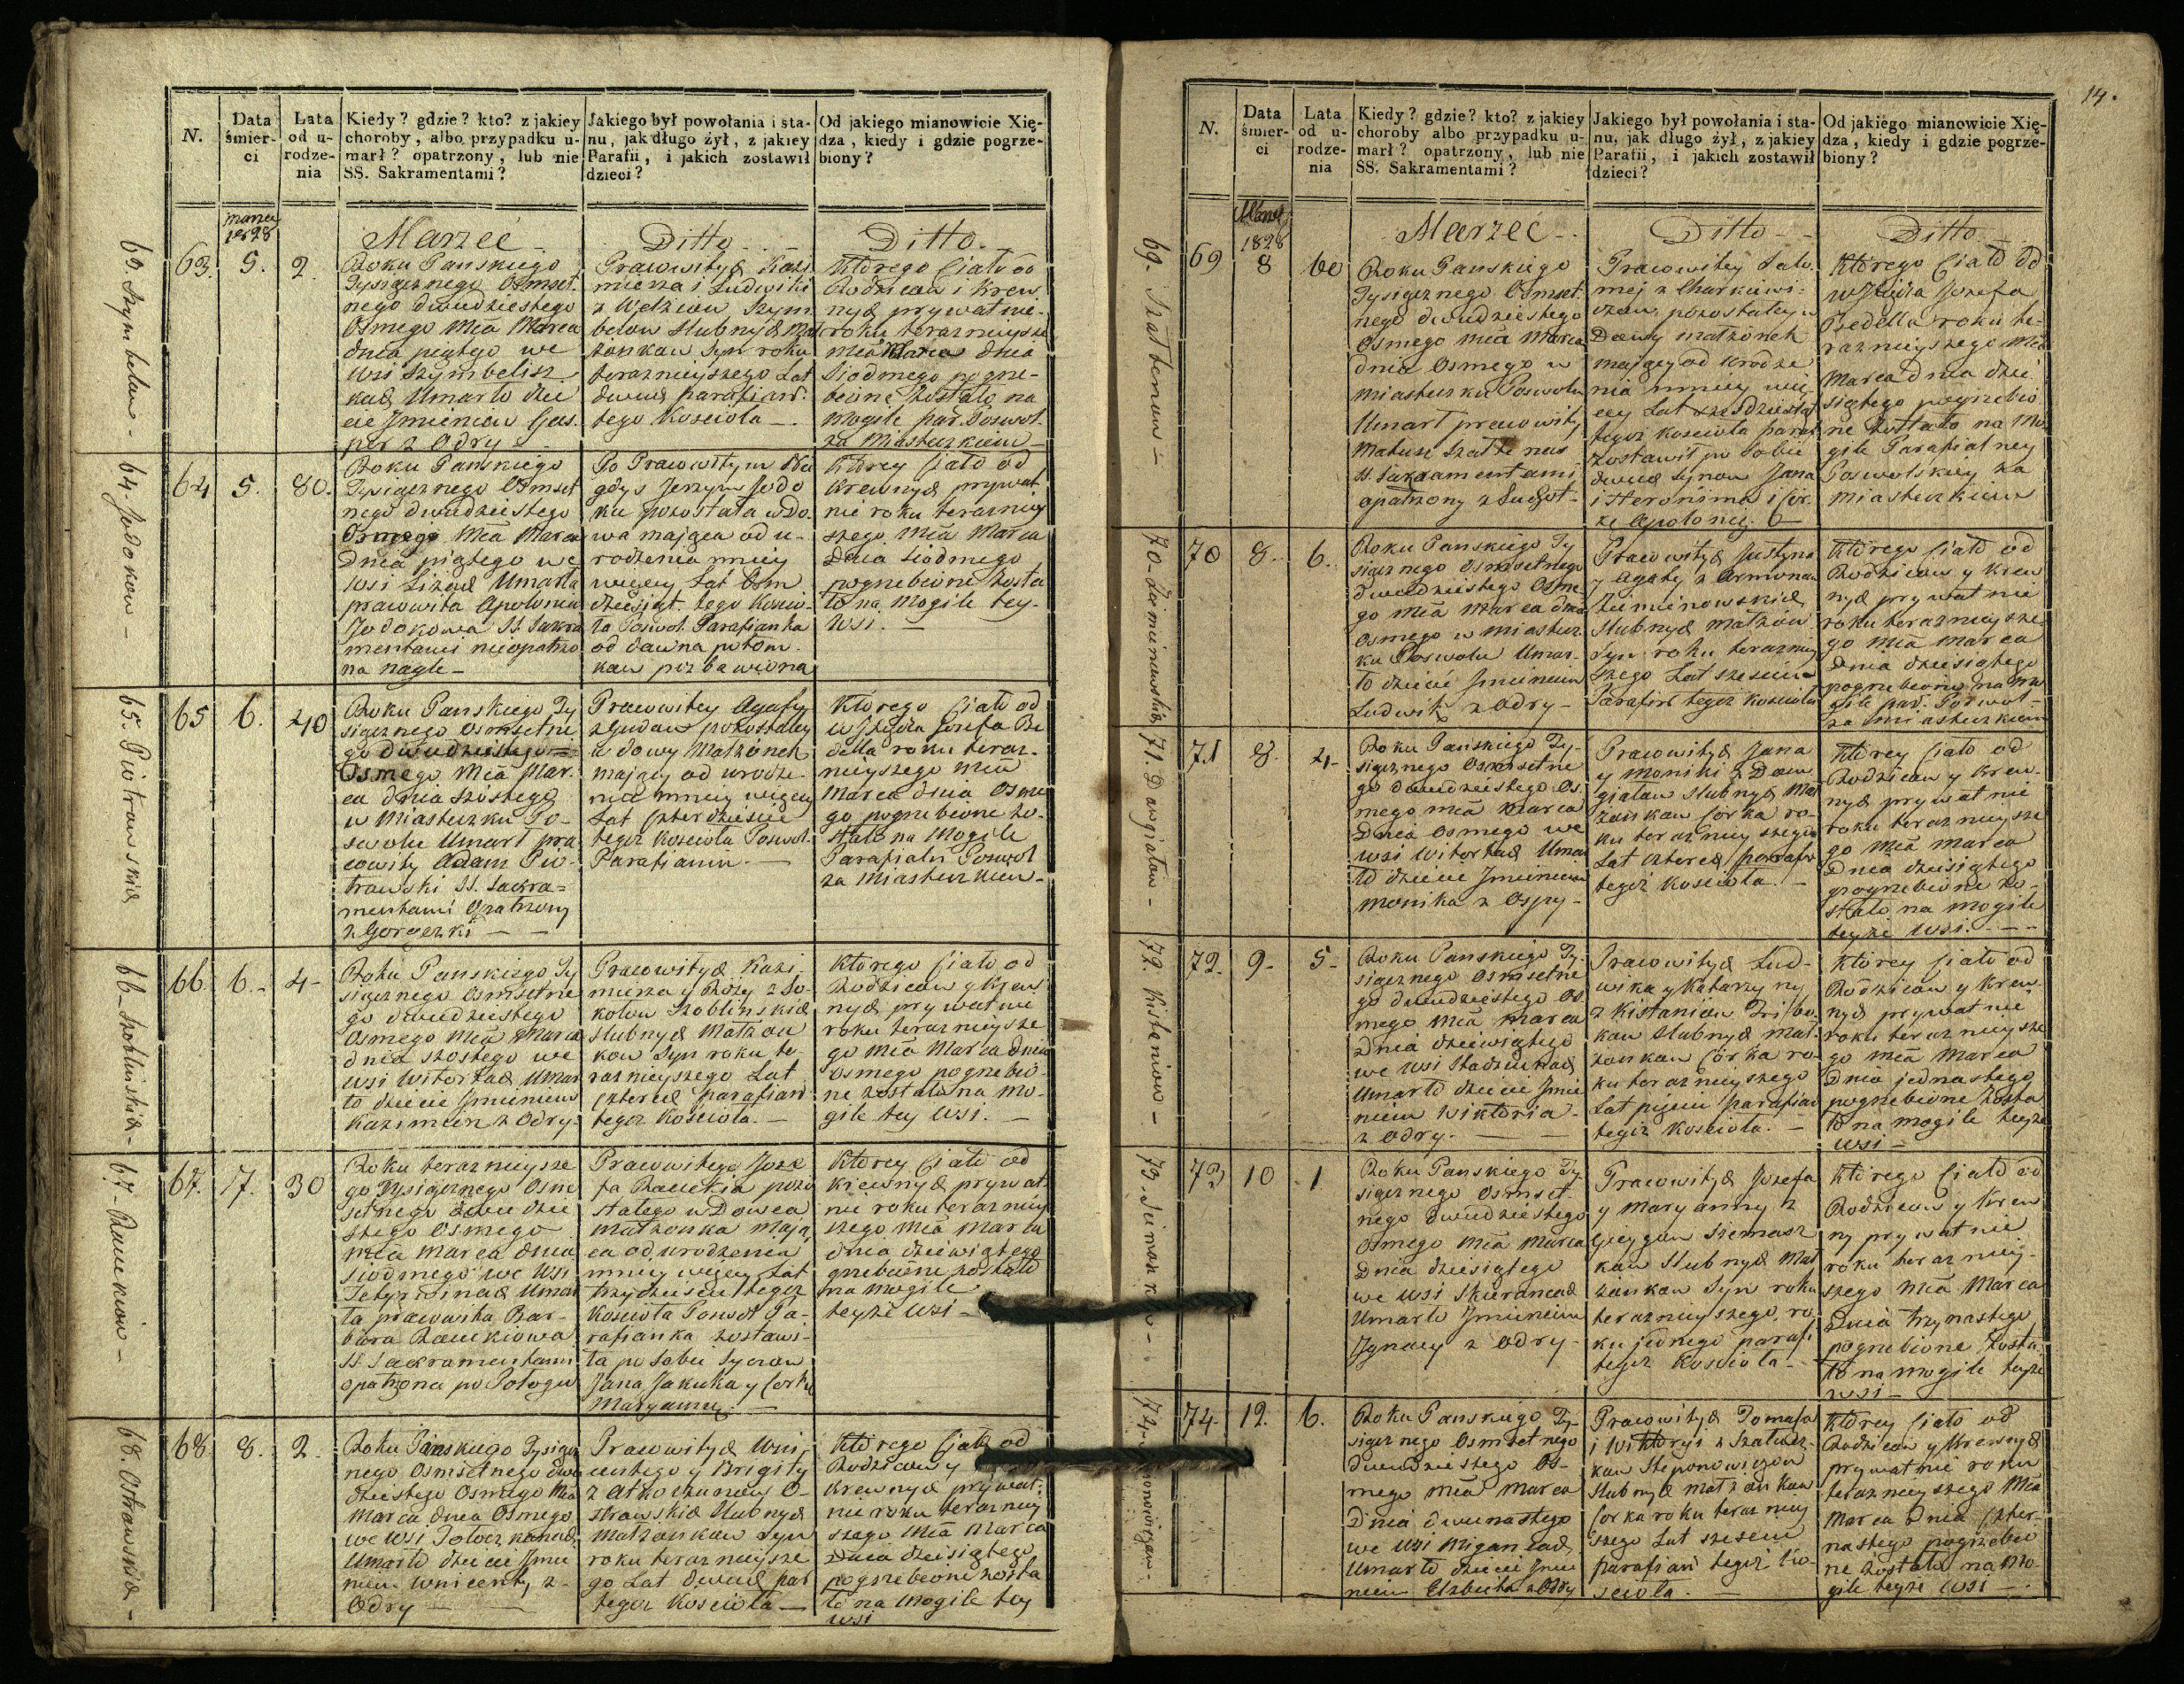 N.
Data śmier- ci
Lata od u- rodze- nia
Kiedy? gdzie? kto? z jakiey
choroby, albo przypadku u-
marł? opatrzony, lub nie
SS. Sakramentami?
Jakiego był powołania i sta-
nu, jak długo żył, z jakiey
Parafii, i jakich zostawił
dzieci?
Od jakiego mianowicie Xię-
dza, kiedy i gdzie pogrze-
biony?
Marca
1828
Marzec
Ditto
Ditto
63. Szymbelow
63. 5. 2.
Roku Panskiego
Tysiącznego Osmset
nego dwudziestego
Osmego Mca Marca
dnia piątego we
Wsi Szymbelisz
kach Umarło dzie
cie Jmieniem Gas
per z Odry
Prawowitych Kazi
mierza i Ludwiki
Szym
below Slubnych Mał
żonkow Syn roku
teraznieyszego Lat
dwuch parafian
tego Kościoła
Którego Ciało od
Rodzicow i Krew
nych prywatnie
roku teraznieysze
Mca Marca dnia
Siodmego pogrze-
bione Zostało na
Mogile par. Poswol
za Miasteczkiem
64. Jodokow
64 5. 80.
Roku Panskiego
Tysiącznego Osmset
nego dwudziestego
Osmego Mca Marca
Dnia piątego we
Wsi Umarła
prawowita Apolonia
Jodokowa SS. Sakra
mentami nieopatrzo
na nagle
Po Prawowitym Nie
gdys Jerzym Jodo
ku pozostała wdo
wa mająca od u-
rodzenia mniey
więcey Lat Osm
dziesiąt tego Koscio
ła Poswol. Parafianka
od dawna potom
kow pozbawiona
Którey Ciało od
Krewnych prywat
nie roku terazniey
szego Mca Marca
Dnia Siodmego
pogrzebione zosta
ło na Mogile tey
Wsi.
65. Piotrowskich
65 6. 40
Roku Panskiego Ty
siącznego Osmsetne
go dwudziestego
Osmego Mca Mar
ca dnia szóstego
w Miasteczku Po-
swolu Umarł pra
wowity Adam Pio-
trowski SS. Sakra=
mentami Opatrzony
z Gorączki
Prawowitey Agafy
pozostałey
wdowy Małżonek
maiący od urodze-
nia mniey więcey
Lat Czterdziescie
tegoż Kościoła Poswol.
Parafianin
Którego Ciało od
Jozefa Be
della roku teraz-
nieyszego Mca
Marca dnia Osme
go pogrzebione zo-
stało na Mogile
Parafialn Poswol
za Miasteczkiem
66. Szoblinskich
66. 6. 4
Roku Panskiego Ty
siącznego Osmsetne
go dwudziestego
Osmego Mca Marca
dnia szostego we
Wsi Witortach Umar
ło dziecie Jmieniem
Kazimierz z Odry
Prawowitych Kazi
mierza y Rozy z So-
kolow Szoblinskich
Slubnych Małżon
kow Syn roku te
raznieyszego Lat
Czterech parafian
tegoż Kościoła.
Którego Ciało od
Rodzicow y Krew
nych prywatnie
roku teraznieysze
go Mca Marca dnia
osmego pogrzebio-
ne zostało na Mo-
gile tey Wsi.
67. Rauckiow
67. 7. 30
Roku teraznieysze
go Tysiącznego Osm
setnego dwudzie
stego Osmego
Mca Marca dnia
Siodmego we Wsi
Umar
ła prawowita Bar-
bara Rauckiowa
SS. Sakramentami
opatrzona po Połogu
Prawowitego Joze
fa Rauckia pozo
stałego wdowca
małżonka mają
ca od urodzenia
mniey więcey Lat
trzydzieści tegoż
Kościoła Poswol Pa-
rafianka zostawi-
ła po Sobie Synow
Jana Jakuba y Corkę
Maryannę
Którey Ciało od
Krewnych prywat
nie roku terazniey
szego Mca Marca
dnia dziewiątego
grzebione zostało
na Mogile
teyże Wsi
68. Ostrowskich
68 8. 2.
Roku Panskiego Tysiącz
nego Osmsetnego dwu
dziestego Osmego Mca
Marca dnia Osmego
we Wsi
Umarło dziecie Jmie
niem Wincenty z
Odry
Prawowitych Win
centego y Brigity
O-
strowskich Slubnych
Małżonkow Syn
roku teraznieysze
go Lat dwuch par
tegoż Kościoła
Którego Ciało od
Rodzicow y
Krewnych prywat
nie roku teraznieyszego
Mca Marca
Dnia dziesiątego
pogrzebione zosta
ło na Mogile tey
Wsi
14.
N.
Data śmier- ci
Lata od u- rodze- nia
Kiedy? gdzie? kto? z jakiey
choroby albo przypadku u-
marł? opatrzony, lub nie
SS. Sakramentami?
Jakiego był powołania i sta-
nu, jak długo żył, z jakiey
Parafii, i jakich zostawił
dzieci?
Od jakiego mianowicie Xię-
dza, kiedy i gdzie pogrze-
biony?
1828
Marzec
Ditto
Ditto
69.
69 8 60
Roku Panskiego
Tysiącznego Osmset
nego dwudziestego
Osmego Mca Marca
dnia Osmego w
Miasteczku Poswolu
Umarł prawowity
Mateusz
SS. Sakramentami
opatrzony z Suchot
Prawowitey Salo
mei z
pozostałey w
Dowy małżonek
mający od urodze
nia mniey wię
cey Lat sześdziesiąt
tegoż kościoła paraf
zostawił po sobie
dwuch Synow Jana
i Heronima i Cór
kę Apolonię
Którego Ciało od
Jozefa
Bedella roku te-
raznieyszego Mca
Marca dnia dzie
siątego pogrzebio
ne zostało na Mo
gile Parafialney
Poswolskiey za
Miasteczkiem
70.
70 8. 6.
Roku Panskiego Ty
siącznego Osmsetnego
dwudziestego Osme
go Mca Marca dnia
Osmego w Miastecz
ku Poswolu Umar-
ło dziecie Jmieniem
Ludwik z Odry
Prawowitych Justyna
y Agaty z
Slubnych Małżon
Syn roku terazniey
szego Lat szesciu
Parafian tegoż kościoła
Którego Ciało od
Rodzicow y Krew
nych prywatnie
roku teraznieysze
go Mca Marca
Dnia dziesiątego
pogrzebione na mo
gile par. Poswol
za miasteczkiem
71. Dowgiałow
71 8. 4
Roku Panskiego Ty-
siącznego Osmsetne
go dwudziestego Os-
mego mca Marca
Dnia Osmego we
wsi Witortach Umar
ło dziecie Jmieniem
Monika z Ospy
Prawowitych Jana
y Moniki z Dow
giałow Slubnych Mał
żonkow Corka ro-
ku teraznieyszego
Lat czterech parafi
tegoż Kościoła.
Którey Ciało od
Rodzicow y Krew-
nych prywatnie
roku teraznieysze
go mca Marca
Dnia dziesiątego
pogrzebione zo-
stało na mogile
teyże wsi.
72. Kisteniow
72. 9. 5
Roku Panskiego Ty-
siącznego Osmsetne
go dwudziestego Os-
mego mca Marca
Dnia dziewiątego
we wsi
Umarło dziecie Jmie
niem Wiktoria
z Odry.
Prawowitych Lud-
wika y Katarzyny
kow Slubnych Mał-
żonkow Córka ro
ku teraznieyszego
Lat pięciu Parafian
tegoż Kościoła.
Którey Ciało od
Rodzicow y Krew-
nych prywatnie
roku teraznieysze
go mca Marca
Dnia jednastego
pogrzebione zosta
ło na mogile teyże
wsi
73. Siemaszkow
73 10 1
Roku Panskiego Ty
siącznego Osmset-
nego dwudziestego
Osmego Mca Marca
Dnia dziesiątego
we wsi
Umarło Jmieniem
Jgnacy z Odry
Prawowitych Jozefa
y Maryanny z
Siemasz
kow Slubnych Mał
żonkow Syn roku
teraznieyszego ro
ku jednego parafi
tegoż Kościoła
Którego Ciało od
Rodzicow y Krew
ny prywatnie
roku teraznieyszego
Mca Marca
Dnia trzynastego
pogrzebione zosta
ło na mogile teyże
wsi
74.
74. 12. 6.
Roku Panskiego Ty-
siącznego Osmsetnego
dwudziestego Os-
mego mca Marca
Dnia dwunastego
we wsi
Umarło dziecie Jmie
niem Elzbieta z Odry
Prawowitych Tomasza
i Wiktoryi z
kow Steponowiczow
Slubnych Małżonkow
Corka roku teraznieyszego
Lat szesciu
parafian tegoż ko-
scioła.
Którey Ciało od
Rodzicow y Krewnych
prywatnie roku
teraznieyszego Mca
Marca Dnia Czter-
nastego pogrzebio
ne zostało na Mo-
gile teyże wsi